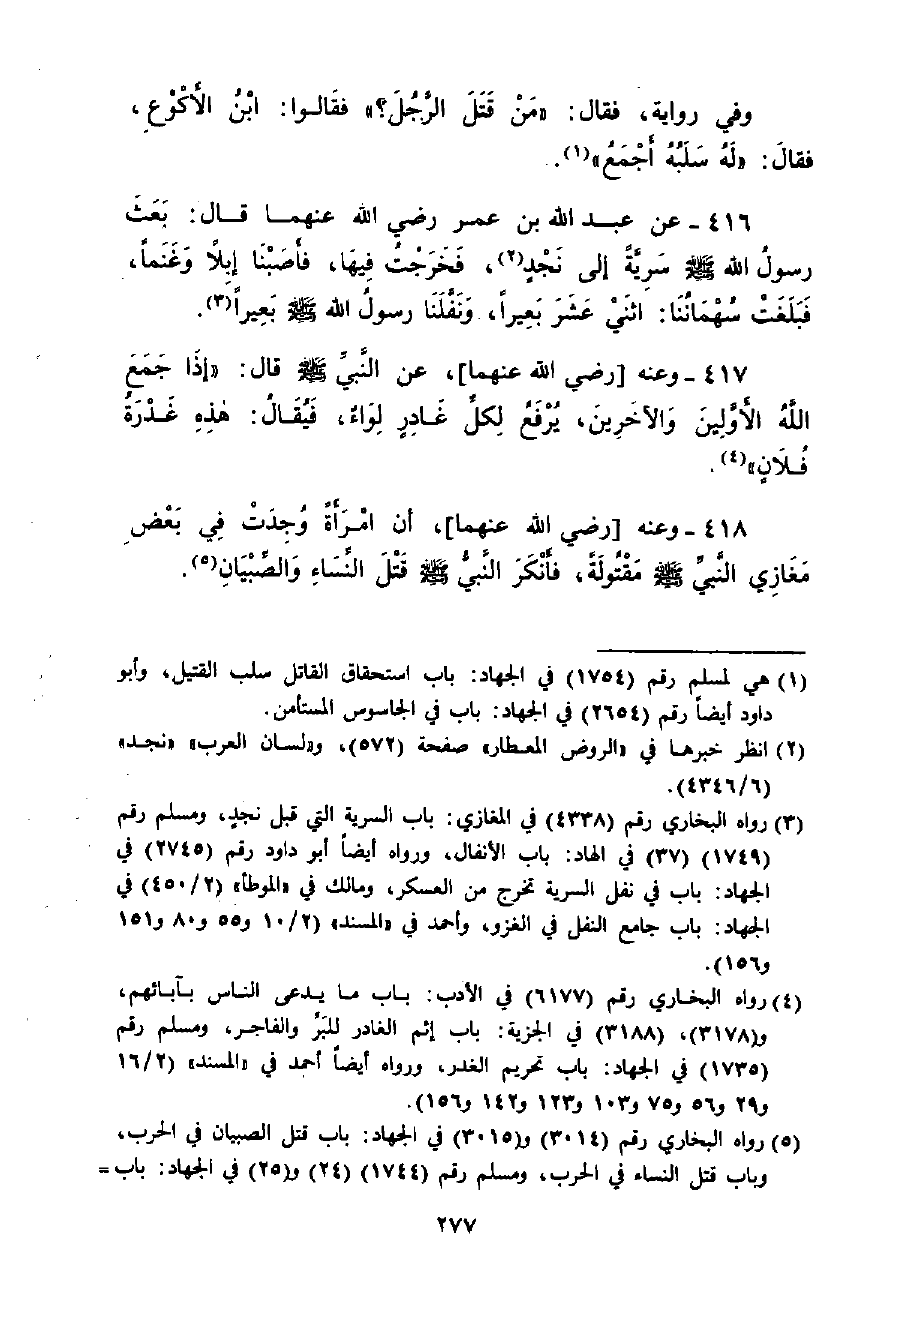 وفي رواية، فقال: «مَنْ قَتَلَ الرَّجُلَ؟» فقَالـوا: ابْنُ الأَكْوَعِ،
فقالَ: «لَهُ سَلَبُهُ أَجْمَعُ»(١).
٤١٦ ـ عن عبـد الله بن عمـر رضي الله عنهمـا قـال: بَعَثَ
رسولُ الله ﷺ سَرِيَّةً إلى نَجْدٍ(٢)، فَخَرَجْتُ فِيهَا، فأَصَبْنَا إبِلاً وَغَنَماً،
فَبَلَغَتْ سُهْمَانُنَا: اثْنَيْ عَشَرَ بَعِيراً، وَنَفَّلَنَا رسولُ الله ﷺ بَعِيراً(٣).
٤١٧ ـ وعنه [رضي الله عنهما]، عن النَّبيِّ ﷺ قال: «إذَا جَمَعَ
اللَّهُ الأوَّلِينَ وَالآخَرِينَ، يُرْفَعُ لِكلِّ غَـادِرٍ لِوَاءٌ، فَيُقَـالُ: هٰذِهِ غَـدْرَةُ
فُـلَانٍ»(٤).
٤١٨ ـ وعنه [رضي الله عنهما]، أن امْـرَأَةً وُجِدَتْ فِي بَعْضِ
مَغَازِي النَّبيِّ ﷺ مَقْتُولَةً، فأَنْكَرَ النَّبيُّ ﷺ قَتْلَ النِّسَاءِ وَالصِّبْيَانِ(٥).
(١) هي لمسلم رقم (١٧٥٤) في الجهاد: باب استحقاق القاتل سلب القتيل، وأبو
داود أيضاً رقم (٢٦٥٤) في الجهاد: باب في الجاسوس المستأمن.
(٢) انظر خبرهـا في «الروض المعـطار» صفحة (٥٧٢)، و«لسان العرب» «نجـد»
(٤٣٤٦/٦).
(٣) رواه البخاري رقم (٤٣٣٨) في المغازي: باب السرية التي قبل نجدٍ، ومسلم رقم
(١٧٤٩) (٣٧) في الهاد: باب الأنفال، ورواه أيضاً أبو داود رقم (٢٧٤٥) في
الجهاد: باب في نفل السرية تخرج من العسكر، ومالك في «الموطأ» (٤٥٠/٢) في
الجهاد: باب جامع النفل في الغزو، وأحمد في «المسند» (١٠/٢ و٥٥ و٨٠ و١٥١
و١٥٦).
(٤) رواه البخـاري رقم (٦١٧٧) في الأدب: بـاب مـا يـدعى النـاس بـآبـائهم،
و(٣١٧٨)، (٣١٨٨) في الجزية: باب إثم الغادر للبَرِّ والفاجـر، ومسلم رقم
(١٧٣٥) في الجهاد: باب تحريم الغدر، ورواه أيضاً أحمد في «المسند» (١٦/٢
و٢٩ و٥٦ و٧٥ و١٠٣ و١٢٣ و١٤٢ و١٥٦).
(٥) رواه البخاري رقم (٣٠١٤) و(٣٠١٥) في الجهاد: باب قتل الصبيان في الحرب،
وباب قتل النساء في الحرب، ومسلم رقم (١٧٤٤) (٢٤) و(٢٥) في الجهاد: باب=
٢٧٧